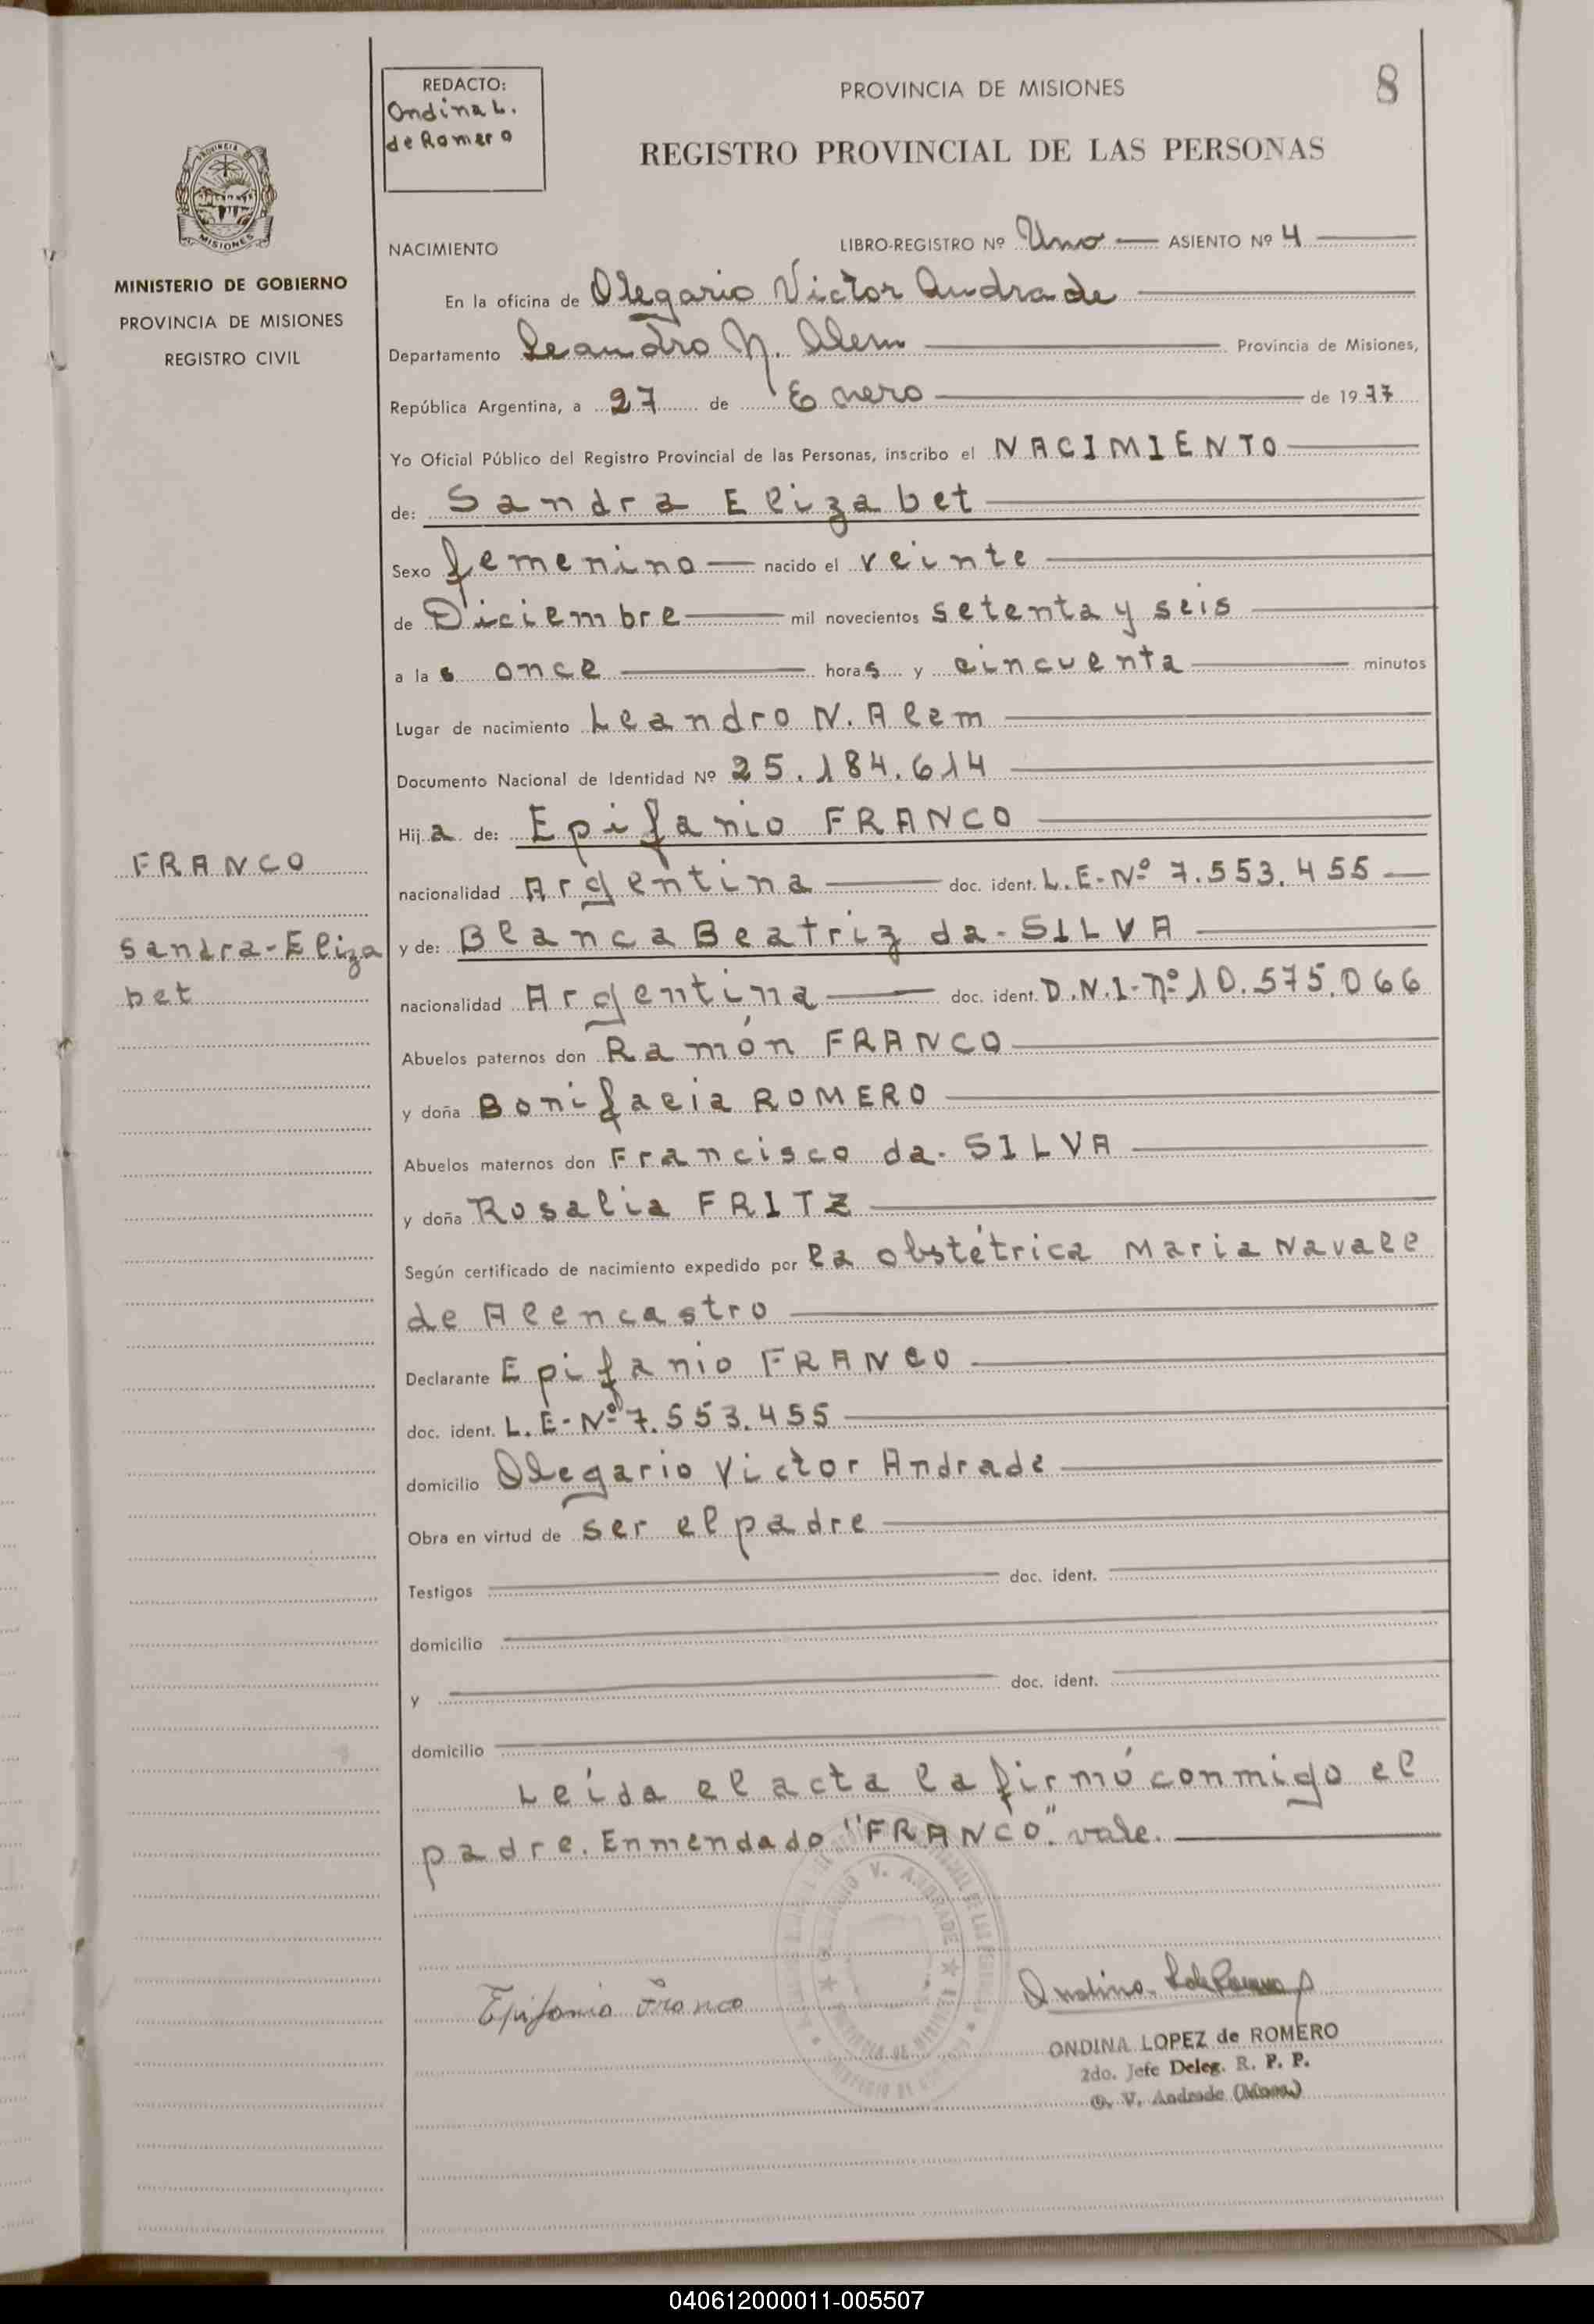 REDACTO:
Ondina L.
de Romero
PROVINCIA DE MISIONES
8
REGISTRO PROVINCIAL DE LAS PERSONAS
PROVINCIA DE
MISIONES
MINISTERIO DE GOBIERNO
PROVINCIA DE MISIONES
REGISTRO CIVIL
NACIMIENTO LIBRO-REGISTRO Nº Uno ASIENTO Nº 4
En la oficina de Olegario Victor Andrade
Departamento Leandro N. Alem Provincia de Misiones,
República Argentina, a 27 de Enero de 1977
Yo Oficial Público del Registro Provincial de las Personas, inscribo el NACIMIENTO
de: Sandra Elizabet
Sexo femenino nacido el veinte
de Diciembre mil novecientos setenta y seis
a las once horas y cincuenta minutos
Lugar de nacimiento Leandro N. Alem
Documento Nacional de Identidad Nº 25.184.614
Hija de: Epifanio FRANCO
FRANCO
nacionalidad Argentina doc. ident. L.E-Nº 7.553.455
Sandra-Eliza
bet
y de: Blanca Beatriz da-SILVA
nacionalidad Argentina doc. ident. D.N.I-nº 10.575.066
Abuelos paternos don Ramón FRANCO
y doña Bonifacia ROMERO
Abuelos maternos don Francisco da-SILVA
y doña Rosalia FRITZ
Según certificado de nacimiento expedido por la obstétrica Maria Navale
de Alencastro
Declarante Epifanio FRANCO
doc. ident. L.E-Nº 7.553.455
domicilio Olegario Victor Andrade
Obra en virtud de ser el padre
Testigos doc. ident.
domicilio
y doc. ident.
domicilio
Leída el acta la firmó conmigo el
padre. Enmendado "FRANCO". vale.
Epifanio Franco
ONDINA LOPEZ de ROMERO
2do. Jefe Deleg. R. P. P.
O. V. Andrade (Mnes.)
040612000011-005507